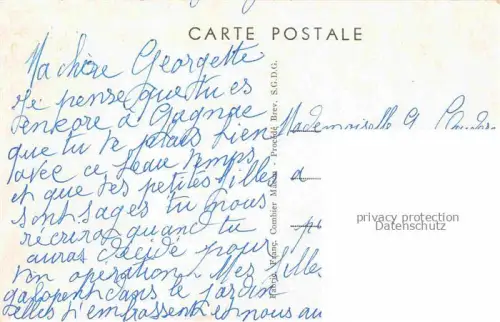 CARTE POSTALE
Ma chère Georgette
Je pense que tu es
enkore à Gagnac
que tu te plais bien
avec ce beau temps
et que tes petites filles
sont sages tu nous
récriras quand tu
auras décidé pour
ton opération Mes filles
galopent dans le jardin
elles t'embrassent et nous au
Mademoiselle G
a
Fabric. Franç. Combier Mâcon - Procédé Brev. S.G.D.G.
privacy protection
Datenschutz